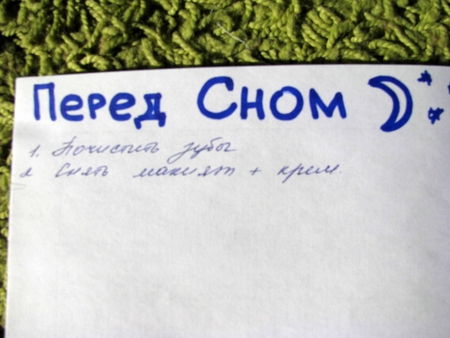 Перед Сном
1. Почистить зубы
2 Снять макияж + крем.